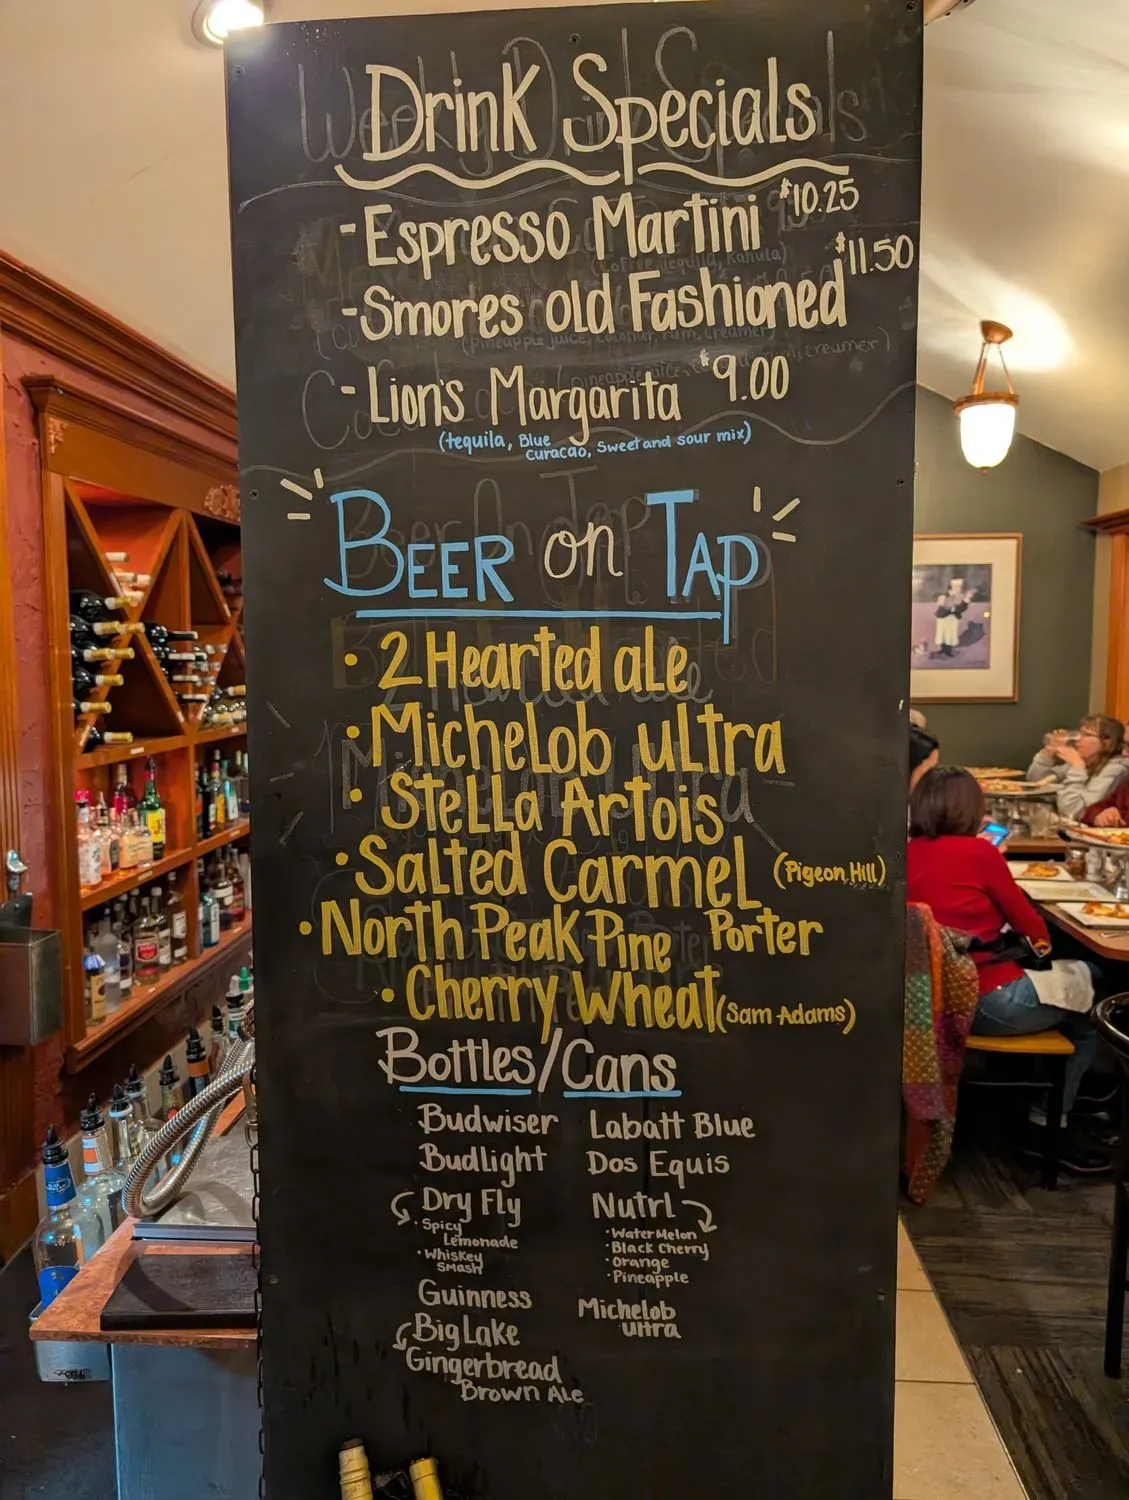 Drink Specials
- Espresso Martini $10.25
- Smores old Fashioned $11.50
- Lion's Margarita $9.00
(tequila, Blue curacao, Sweet and sour mix)
BEER on TAP
• 2 Hearted ale
• Michelob ultra
• Stella Artois
• Salted Carmel (Pigeon Hill)
Porter
• North Peak Pine
• Cherry Wheat (Sam Adams)
Bottles/Cans
Budwiser
Budlight
Dry Fly
• Spicy
Lemonade
• Whiskey
Smash
Guinness
Big Lake
Gingerbread
Brown Ale
Labatt Blue
Dos Equis
Nutrl
• Water Melon
• Black Cherry
• Orange
• Pineapple
Michelob
ultra